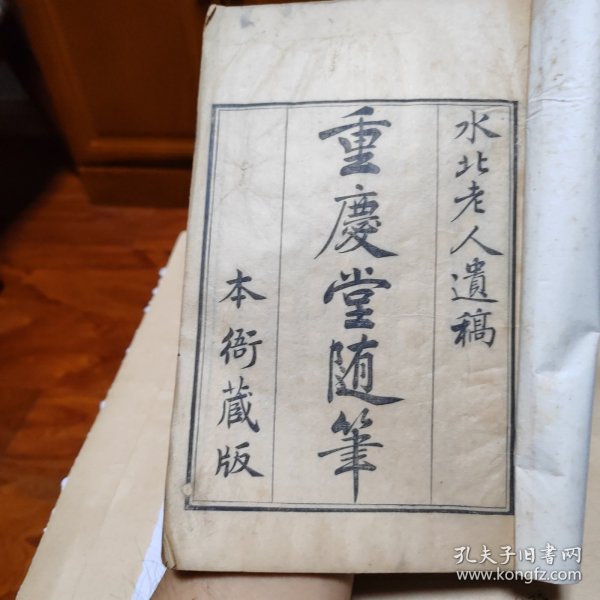 水北老人遺稿
重慶堂随筆
本衙蔵版
孔夫子旧书网
www.kongfz.com